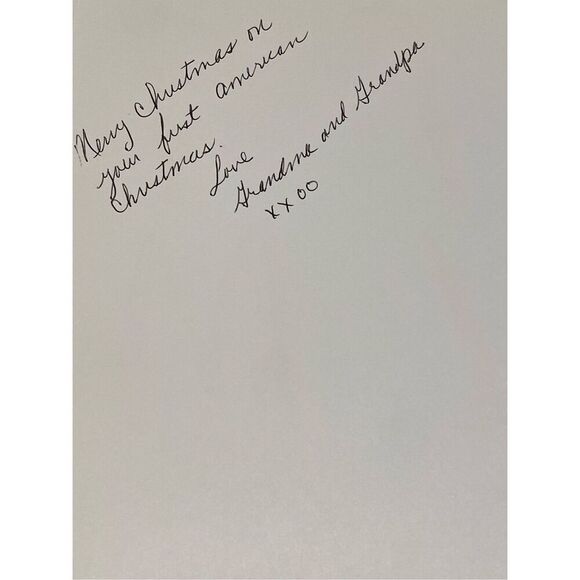 Merry Christmas on
your first American
Christmas.
Love
Grandma and Grandpa
XXOO